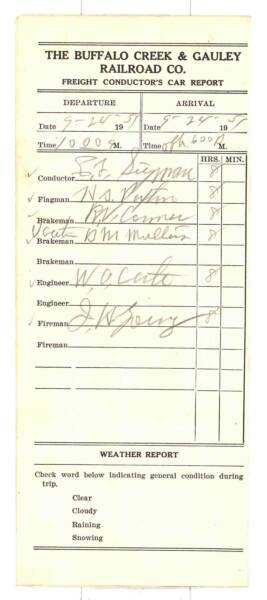 THE BUFFALO CREEK & GAULEY
RAILROAD CO.
FREIGHT CONDUCTOR'S CAR REPORT
DEPARTURE ARRIVAL
Date 9-24-1951 Date 9-24-1951
Time 1000a M. Time 600P M.
HRS. MIN.
Conductor 8
Flagman H S 8
Brakeman 8
Brakeman B M Mullens 8
Brakeman
Engineer W. O. 8
Engineer
Fireman J H 8
Fireman
WEATHER REPORT
Check word below indicating general condition during
trip.
Clear
Cloudy
Raining
Snowing